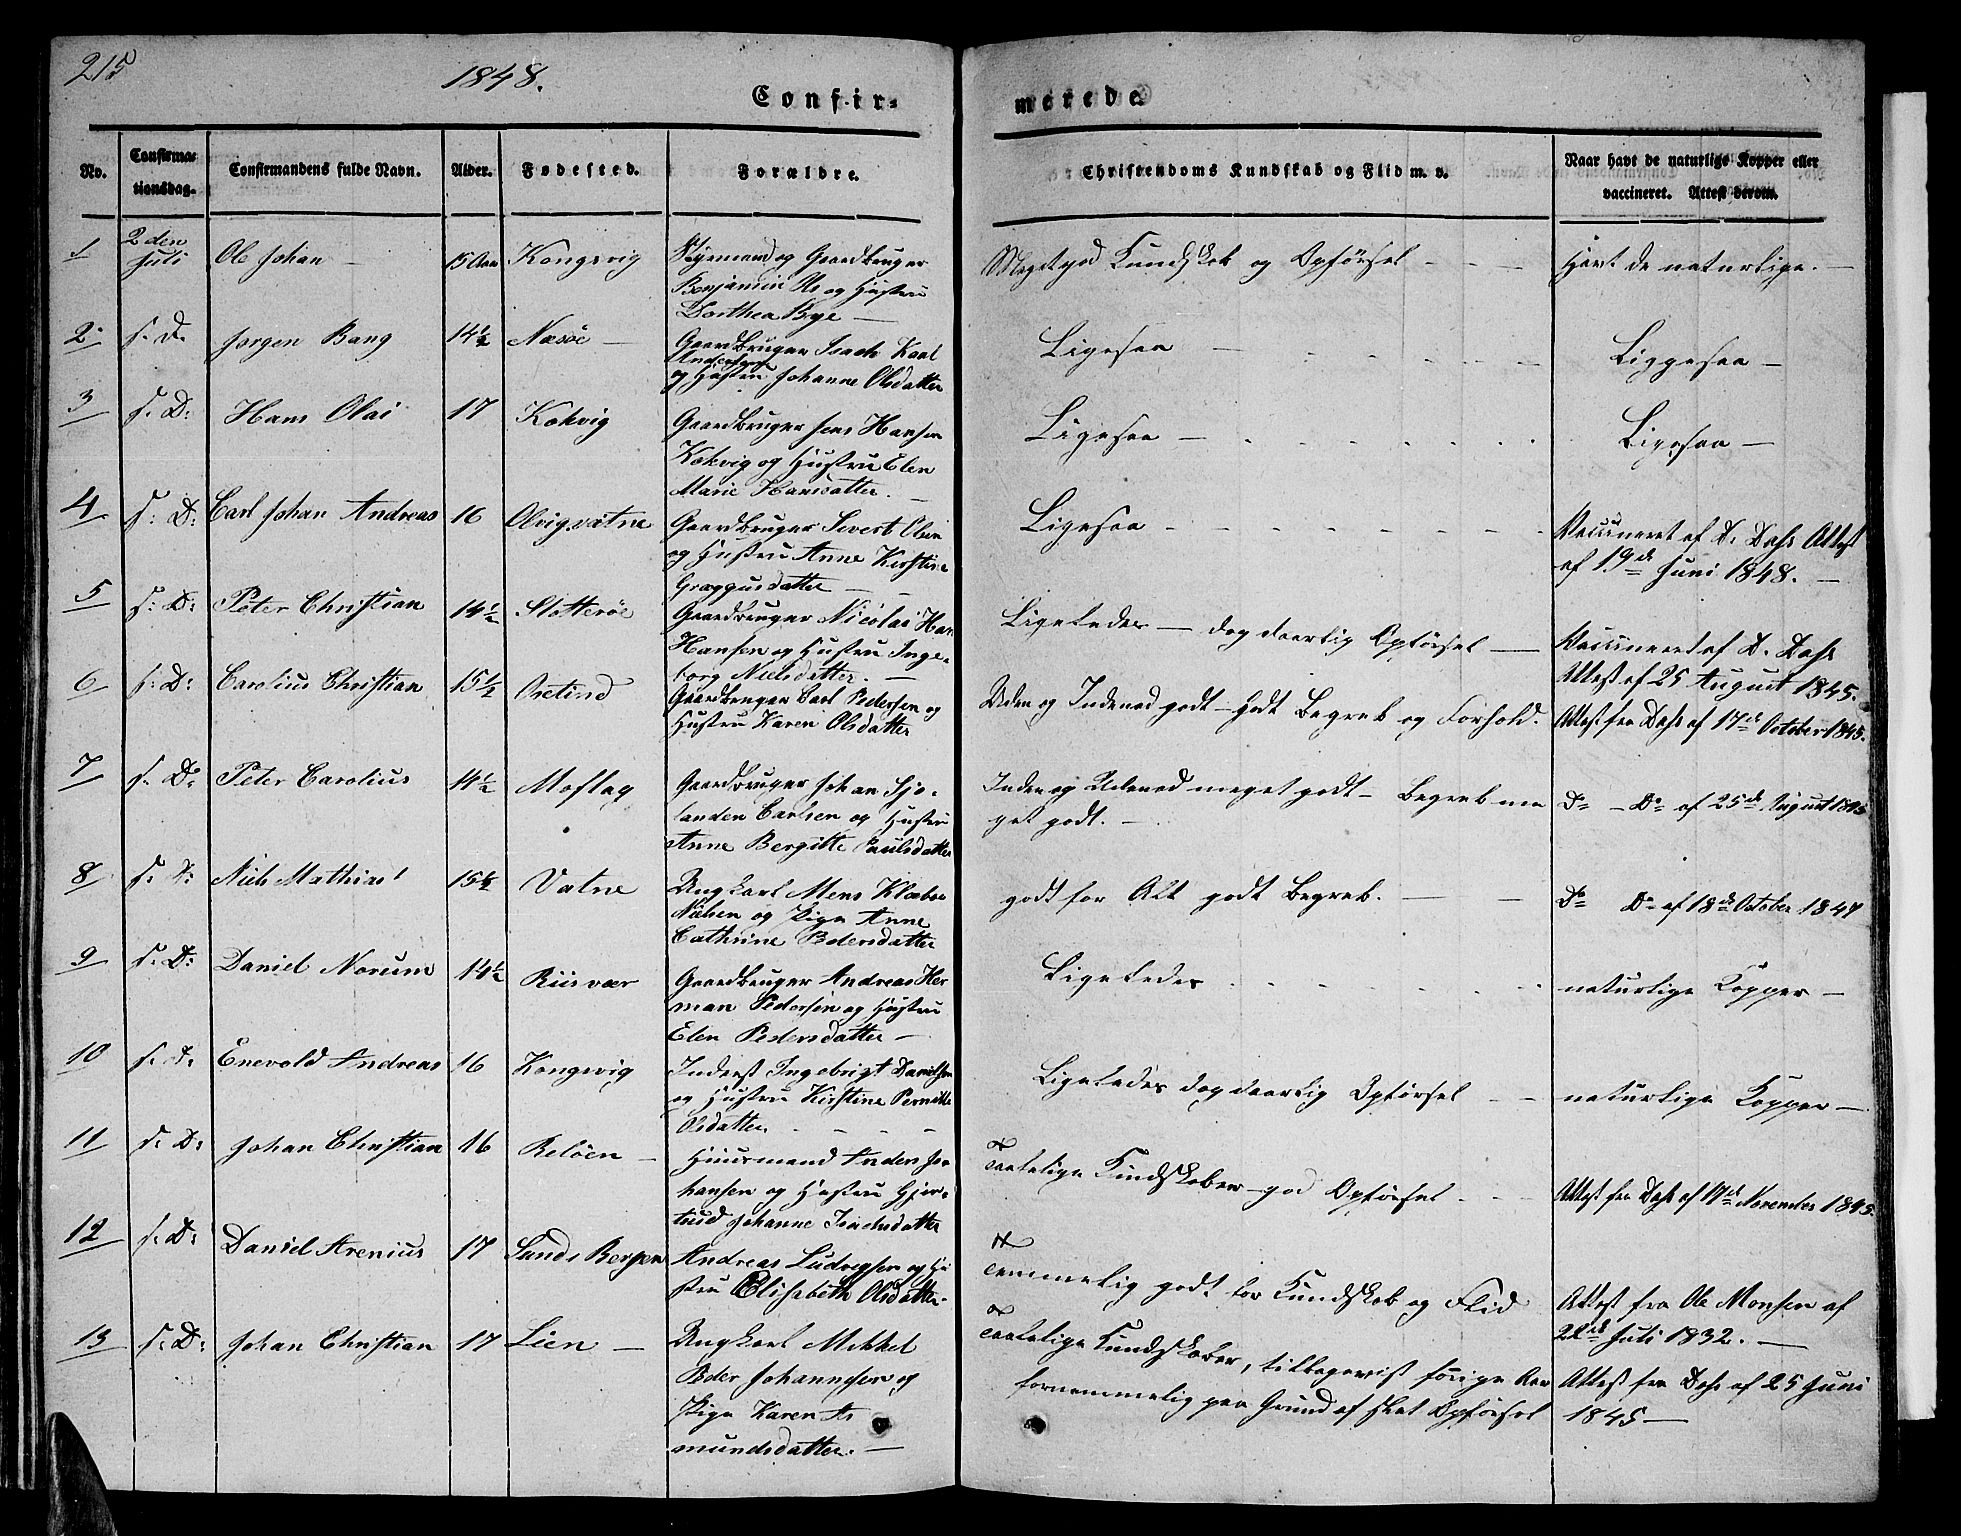 215
1848.
Confir-
merede.
No.
Confirma-
tionsdag.
Confirmandens fulde Navn.
Alder.
Fødested.
Forældre.
Christendoms Kundskab og Flid m. v.
Naar havt de naturlige Kopper eller
vaccineret. Attest derom.
1
2den
Juli
Ole Johan —
15 Aar
Kongsvig
og Gaardbruger
Benjamin Ås og Hustru
Dorthea Bye —
Meget god Kundskab og Opførsel - - -
Havt de naturlige. —
2
s. D.
Jørgen Bang
14½
Næsøe —
Gaardbruger Isach Karl
Andersen
og Hustru Johanne Olsdatter
Ligesaa —
Liggesaa —
3
s. D:
Hans Olai
17
Kokvig
Gaardbruger Jens Hansen
Kokvig og Hustru Elen
Marie Hansdatter. —
Ligesaa —
Ligesaa —
4
s: D:
Carl Johan Andreas
16
Olvigvatne
Gaardbruger Sivert Olsen
og Hustru Anne Kirstine
Græggusdatter —
Ligesaa -
Vaccineret af D. Dahs Attest
af 19de Juni 1848. —
5
s: D:
Peter Christian
14½
Slotterøe
Gaardbruger Nicolai Han
Hansen og Hustru Inge-
borg Nielsdatter. —
Ligeledes — dog daarlig Opførsel —
Vaccineret af D. Dahs
Attest af 25 August 1845.
6
s: D:
Carolius Christian
15½
Oretind
Gaardbruger Carl Pedersen og
Hustru Karen Olsdatter
Uden og Indenad godt - godt Begreb og Forhold.
Attest fra Dahs af 17de October 1845.
7
s. D:
Peter Carolius
14½
Moflag
Gaardbruger Johan Sjo-
landen Carlsen og Hustru
Anne Bergitte Paulsdatter
Inden og Udenad meget godt — Begreb me
get godt. —
Do — Do af 25de August 1845
8
s: D:
Niels Mathias
15½
Vatne
Ungkarl Mens Klæboe
Nielsen og Pige Anne
Cathrine Pedersdatter
godt for Alt godt Begreb. —
Do Do af 18de October 1847
9
s: D:
Daniel Norum
14½
Riisvær
Gaardbruger Andreas Her
man Pedersen og Hustru
Elen Pedersdatter —
Ligeledes
naturlige Kopper —
10
s. D:
Enevold Andreas
16
Kongsvig
Inderst Ingebrigt Danielsen
og Hustru Kirstine Pernille
Olsdatter
Ligeledes dog daarlig Opførsel - -
naturlige Kopper —
11
s: D:
Johan Christian
16
Reløen —
Huusmand Anders Jo
hansen og Hustru Gjer-
trud Johanne Isachsdatter
Taalelige Kundskaber - god Opførsel - -
Attest fra Dahs af 17de November 1845.
12
s: D:
Daniel Arenius
17
Sands Bergen
Andreas Ludvigsen og Hu
stru Elisabeth Olsdatter.
Temmelig godt for Kundskab og Flid
Attest fra Ole Monsen af
22de Juli 1832. —
13
s: D:
Johan Christian
17
Lien —
Ungkarl Mikkel
Peder Johannesen og
Pige Karen As
mundsdatter. —
Taalelige Kundskaber, tilbageviist forige Aar
fornemmelig paa Grund af slet Opførsel
Attest fra Dahs af 25 Juni
1845 —